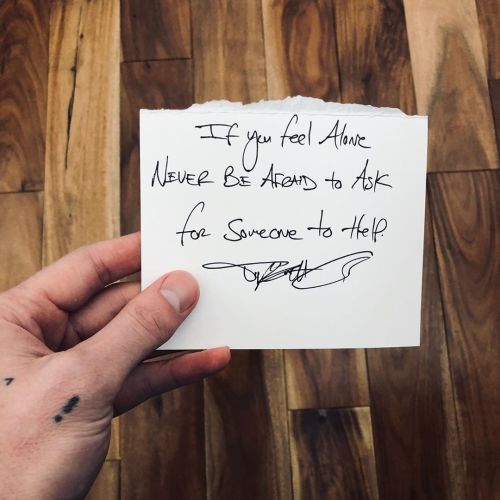 If you feel Alone
NEVER BE AFRAID to ASK
for Someone to Help.